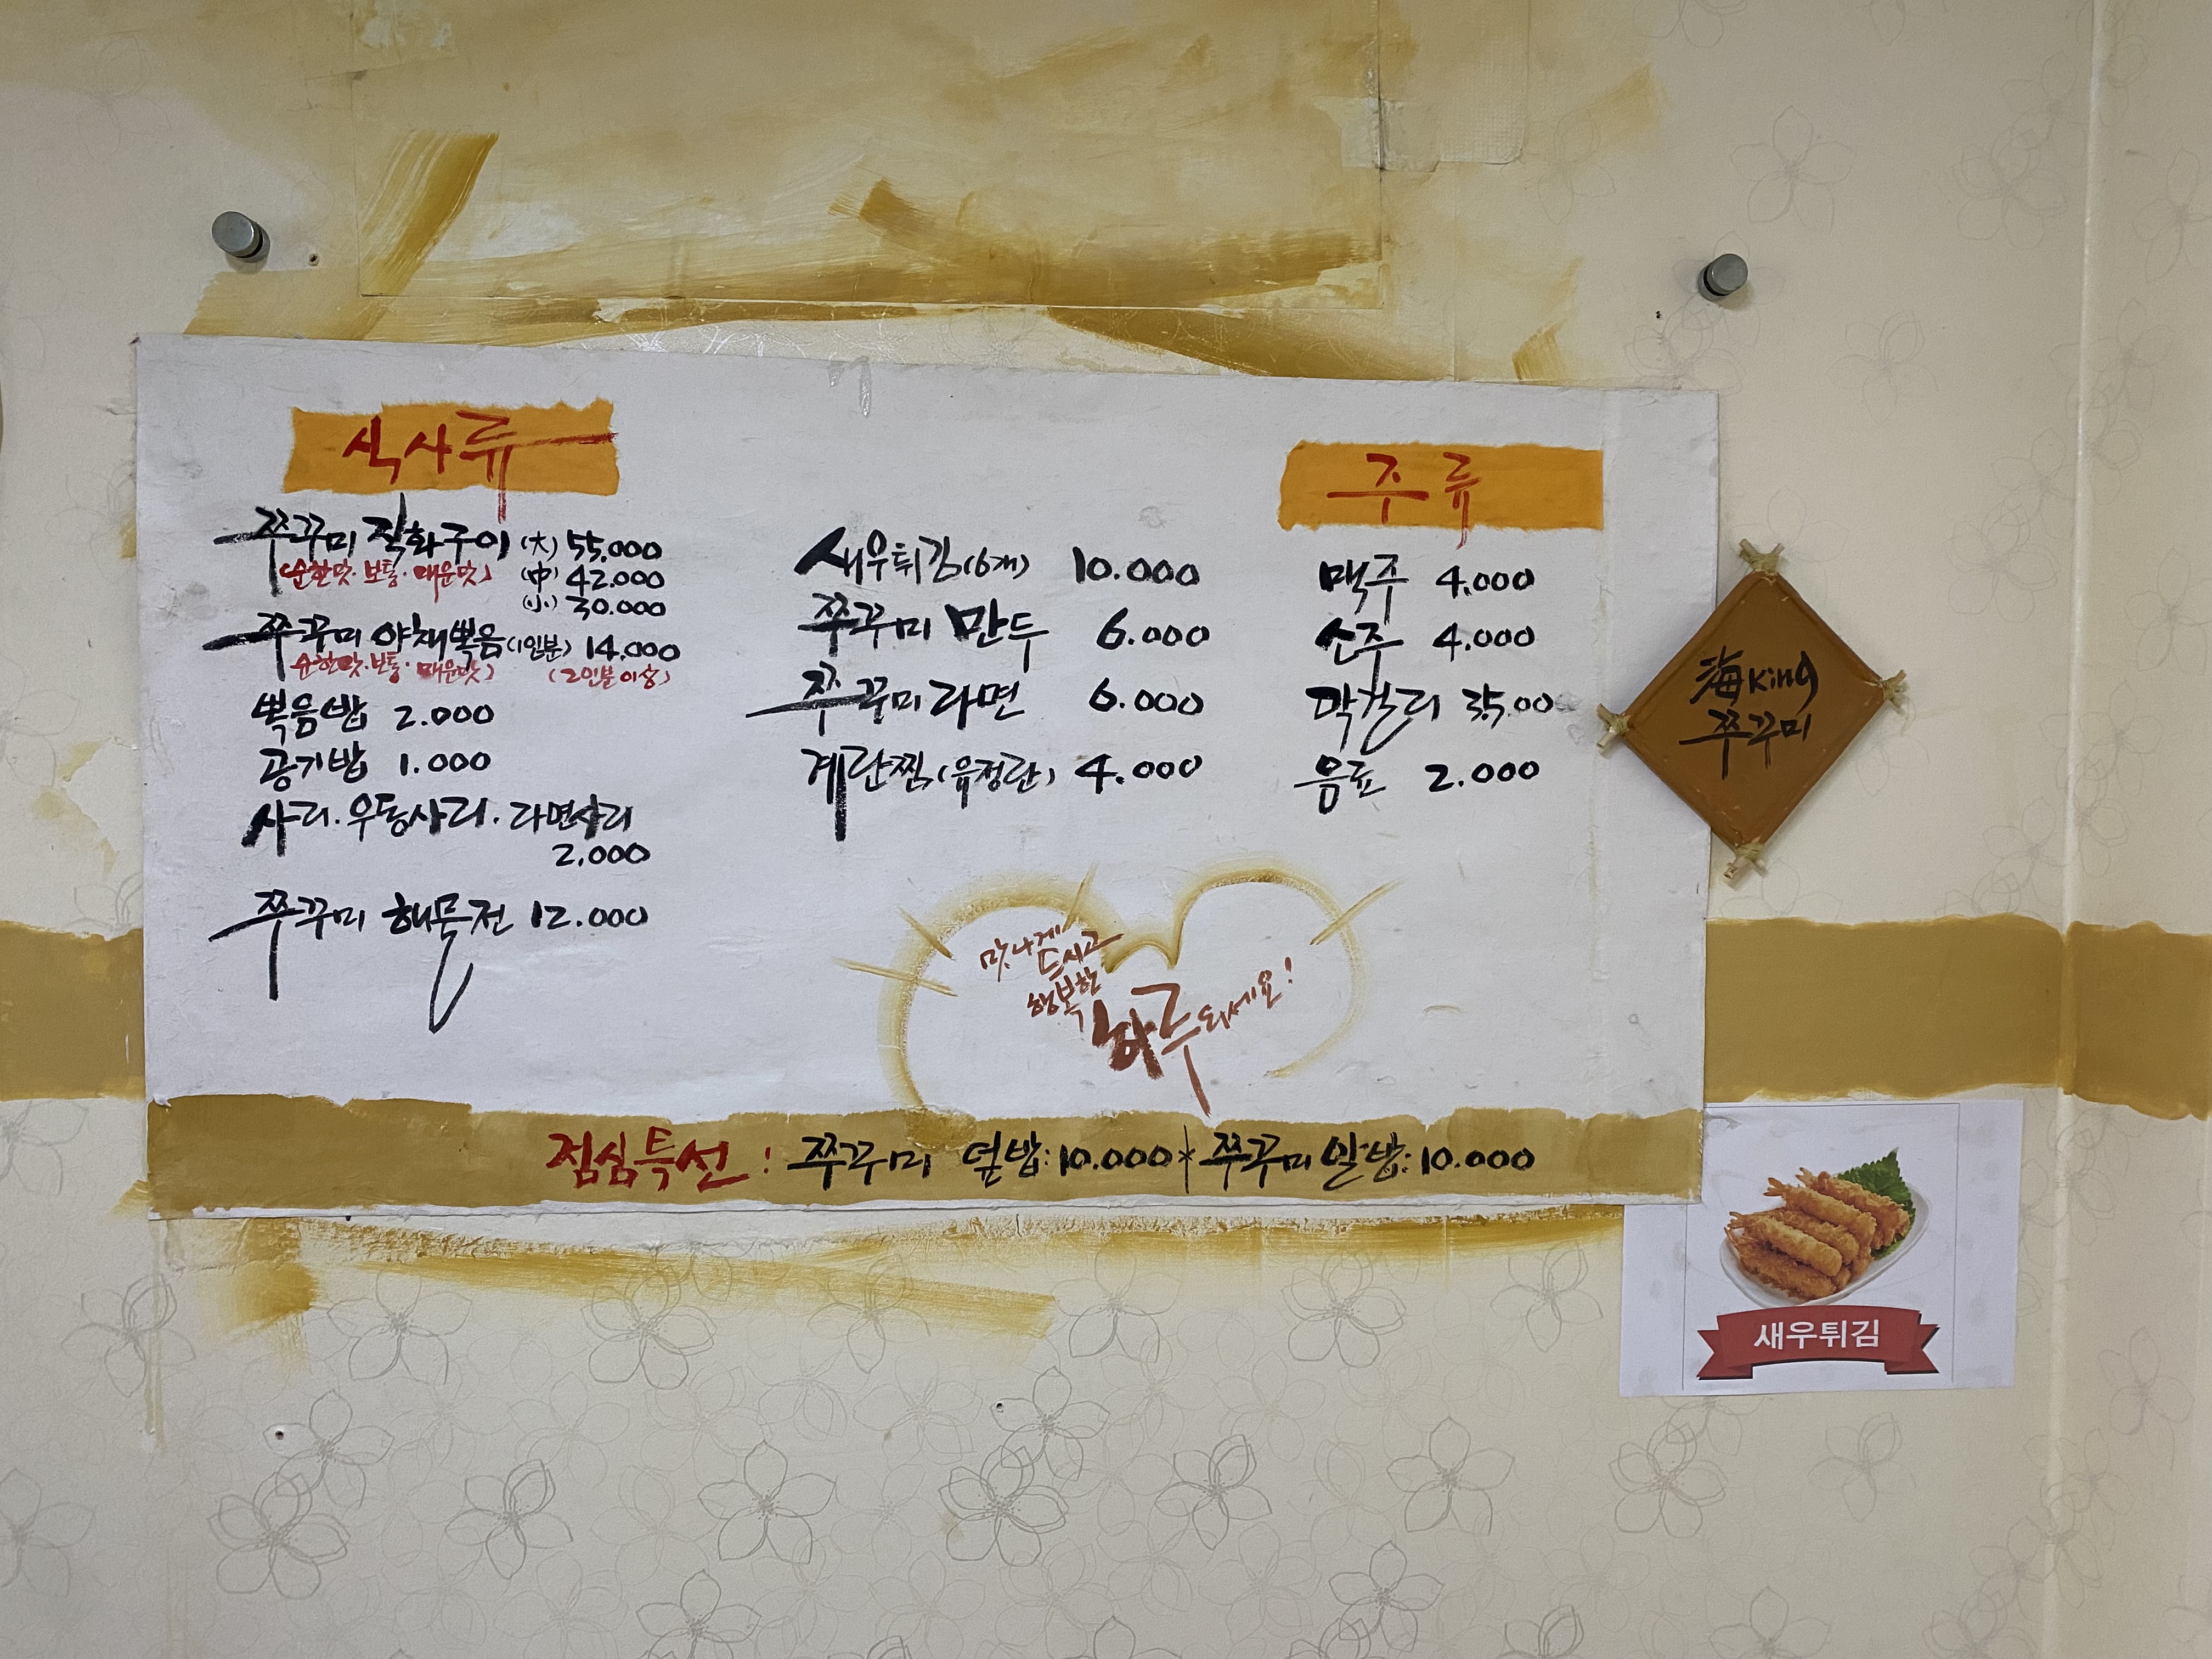 식사류
쭈꾸미 직화구이 (大) 55,000
(순한맛·보통·매운맛) (中) 42.000
(小) 30.000
쭈꾸미 야채볶음(1인분) 14,000
순한맛·보통·매운맛) (2인분이상)
볶음밥 2.000
공기밥 1.000
사리·우동사리·라면사리
2,000
쭈꾸미 해물전 12.000
새우튀김(6개) 10.000
쭈꾸미 만두 6.000
쭈꾸미라면 6.000
계란찜(유정란) 4.000
주류
맥주 4.000
소주 4.000
막걸리
음료 2.000
맛나게
드시고
행복한
하루되세요!
점심특선 : 쭈꾸미 덮밥:10.000 * 쭈꾸미알밥:10.000
海King
쭈꾸미
새우튀김